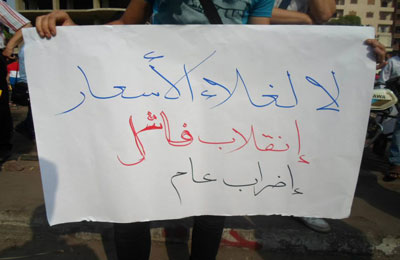 لا لغلاء الأسعار
إنقلاب فاشل
إضراب عام